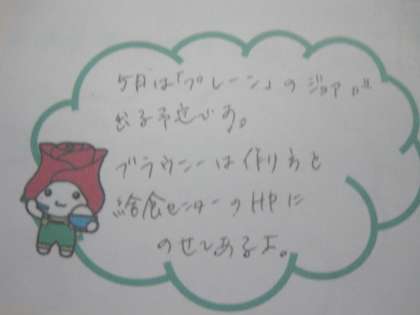 5月は「プレーン」のジョアが
出る予定です。
ブラウニーは作り方を
給食センターのHPに
のせてあるよ。